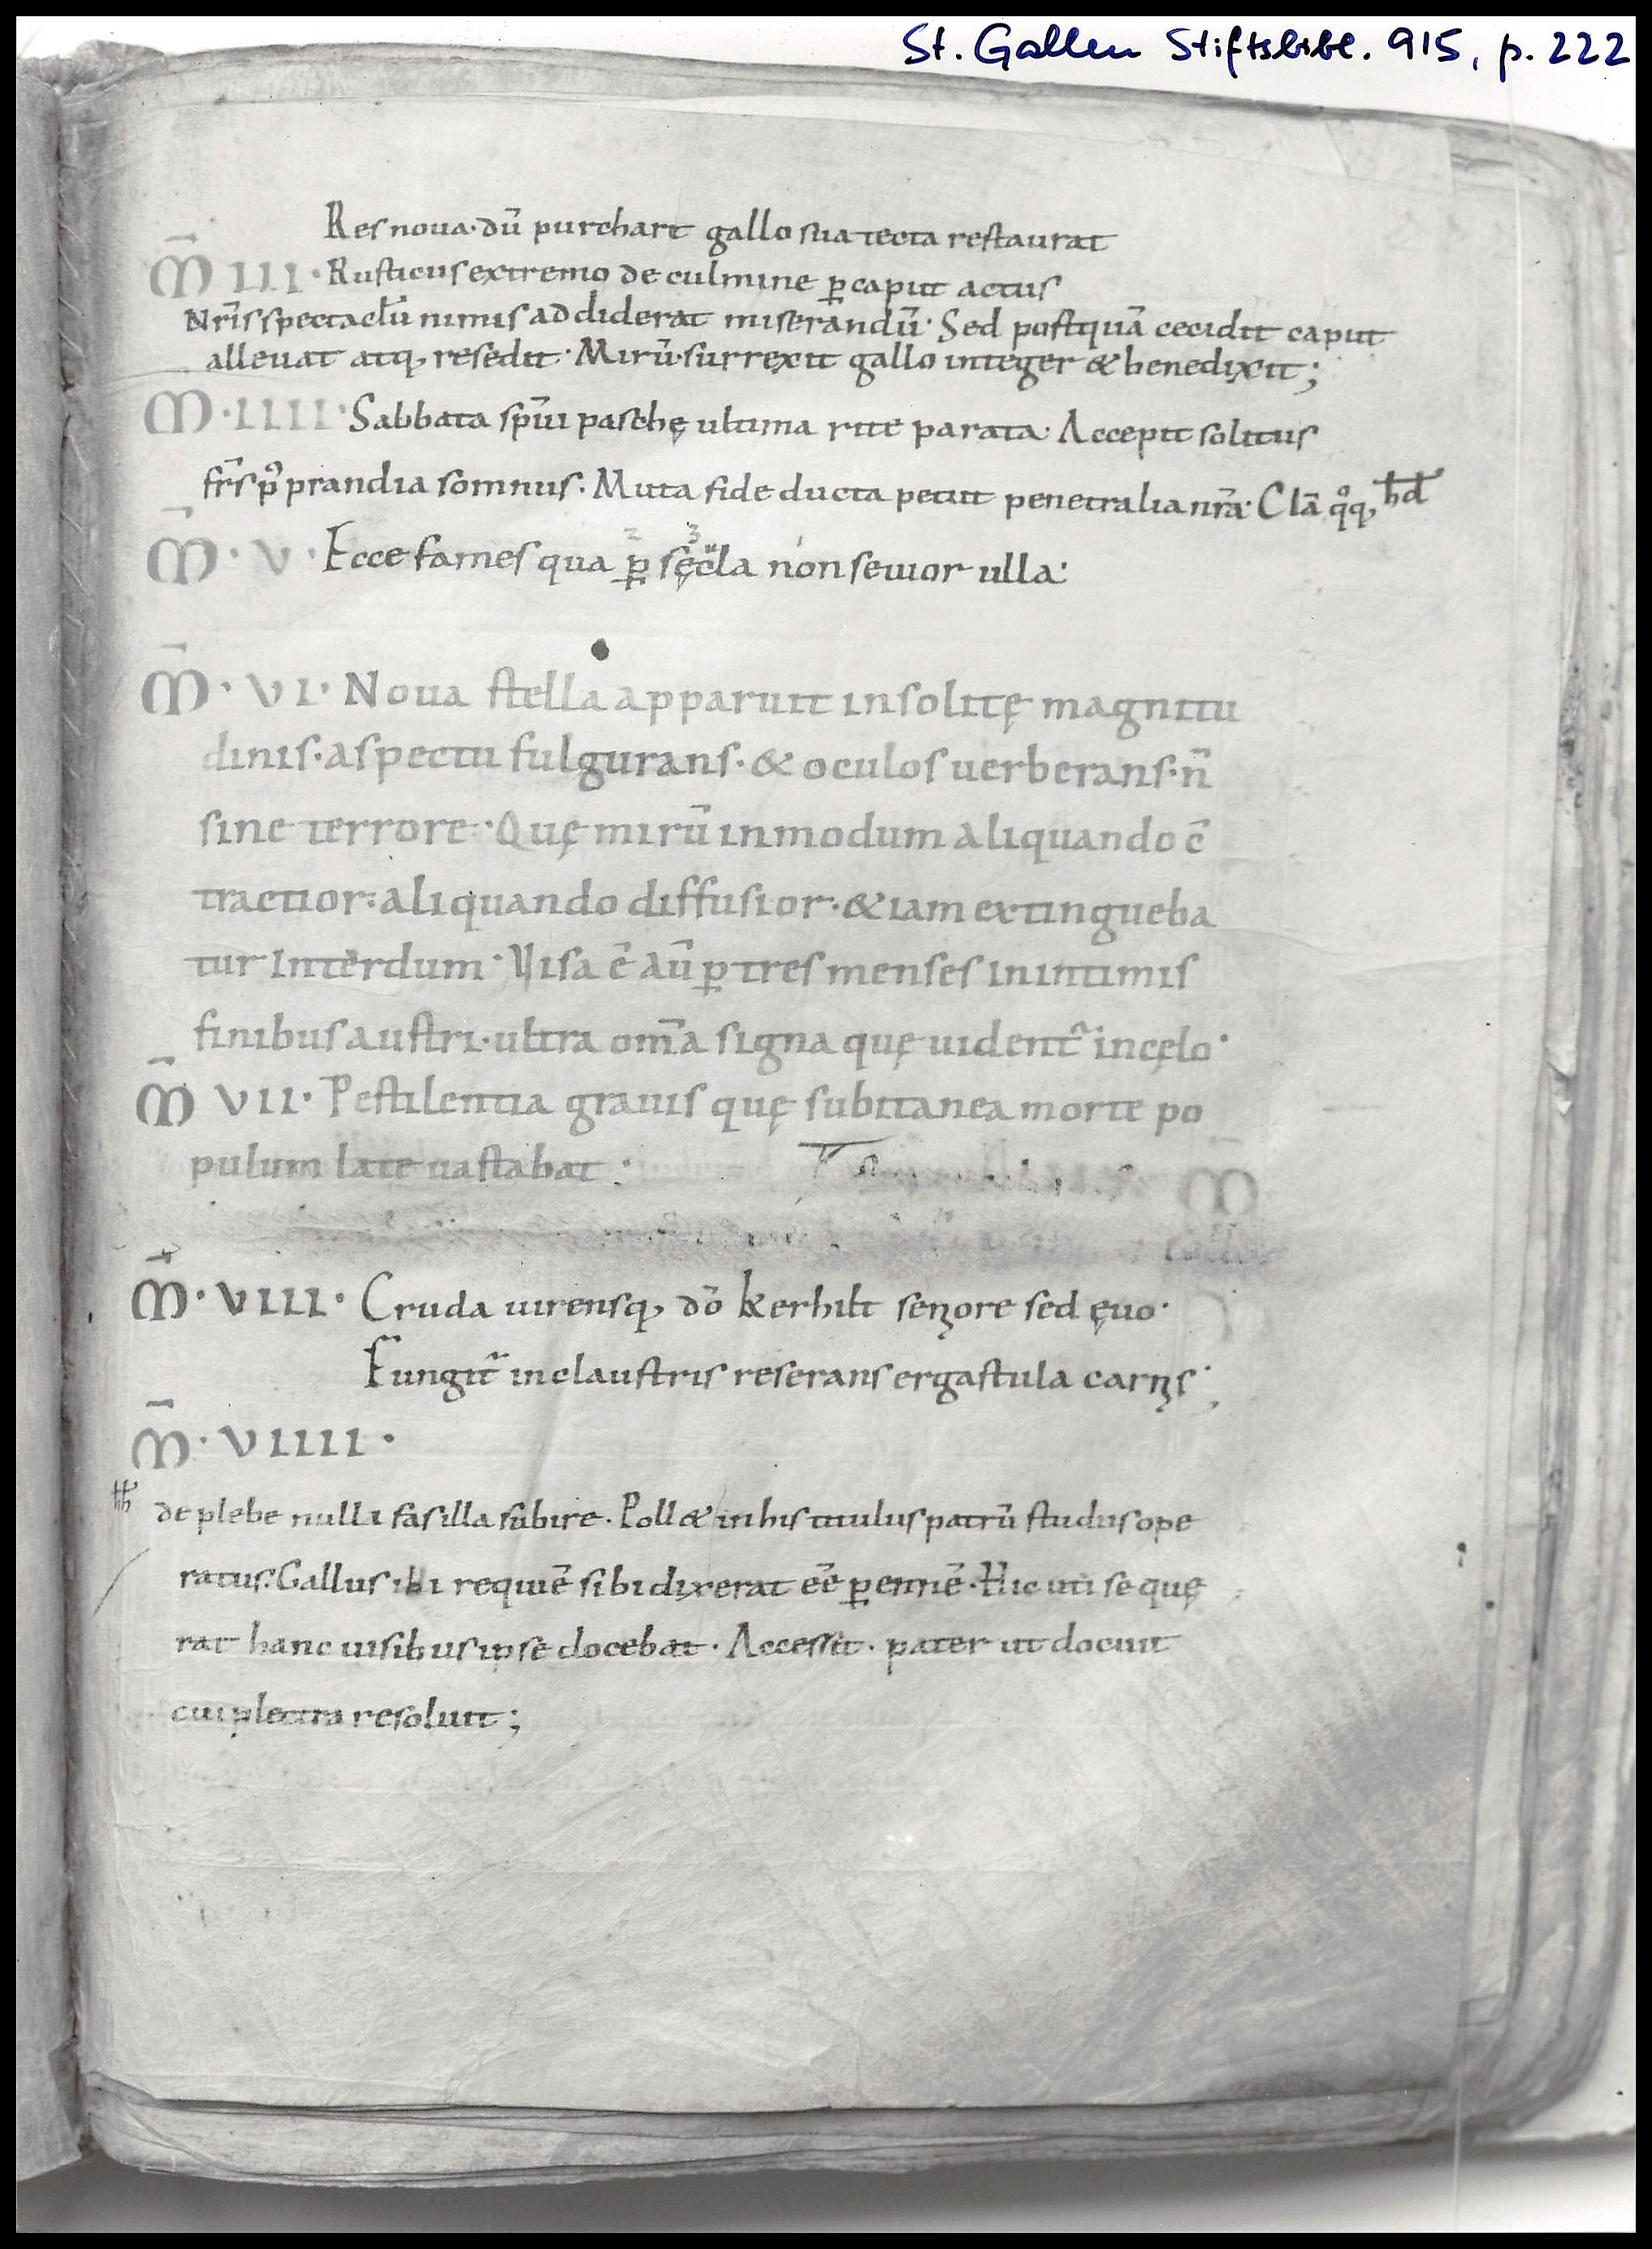 St. Gallen Stiftsbibl. 915, p. 222
Res noua· dū purchart gallo sua tecta restaurat
M̄ III· Rusticus extremo de culmine ꝑ caput actus
Nr̄is spectaclū nimis addiderat miserandū· Sed postquā cecidit caput
alleuat atq, resedit· Mirū· surrexit gallo integer & benedixit;
M̄·IIII· Sabbata sp̄iu paschę ultima rite parata· Accepit solitus
fr̄s p̊ prandia somnus· Muta fide ducta petiit penetralia nr̄a· Clā q̊q, h̄d
M̄·V· Ecce fames qua ꝑ sęcla non seuior ulla:
M̄·VI· Noua stella apparuit insolitę magnitu
dinis· aspectu fulgurans· & oculos uerberans· n̄
sine terrore· Quę mirū inmodum aliquando c̄
tractior· aliquando diffusior· & iam extingueba
tur interdum· Uisa ē aū ꝑ tres menses in intimis
finibus austri· ultra om̄a signa quę uident̄ incęlo·
M̄ VII· Pestilentia grauis quę subitanea morte po
pulum late uastabat:
M̄
M̄·VIII· Cruda uirensq, dō kerhilt senore sed ęuo·
Fungit̄ in claustris reserans ergastula carnis;
M̄·VIIII·
hh̄ de plebe nulli fas illa subire· Poll& in his titulus patrū studiis ope
ratus· Gallus ibi requiē sibi dixerat eē̄ ꝑennē· Hic uti se quę
rat hanc uisibus ipse docebat· Accessit· pater ut docuit
cui plectra resoluit;